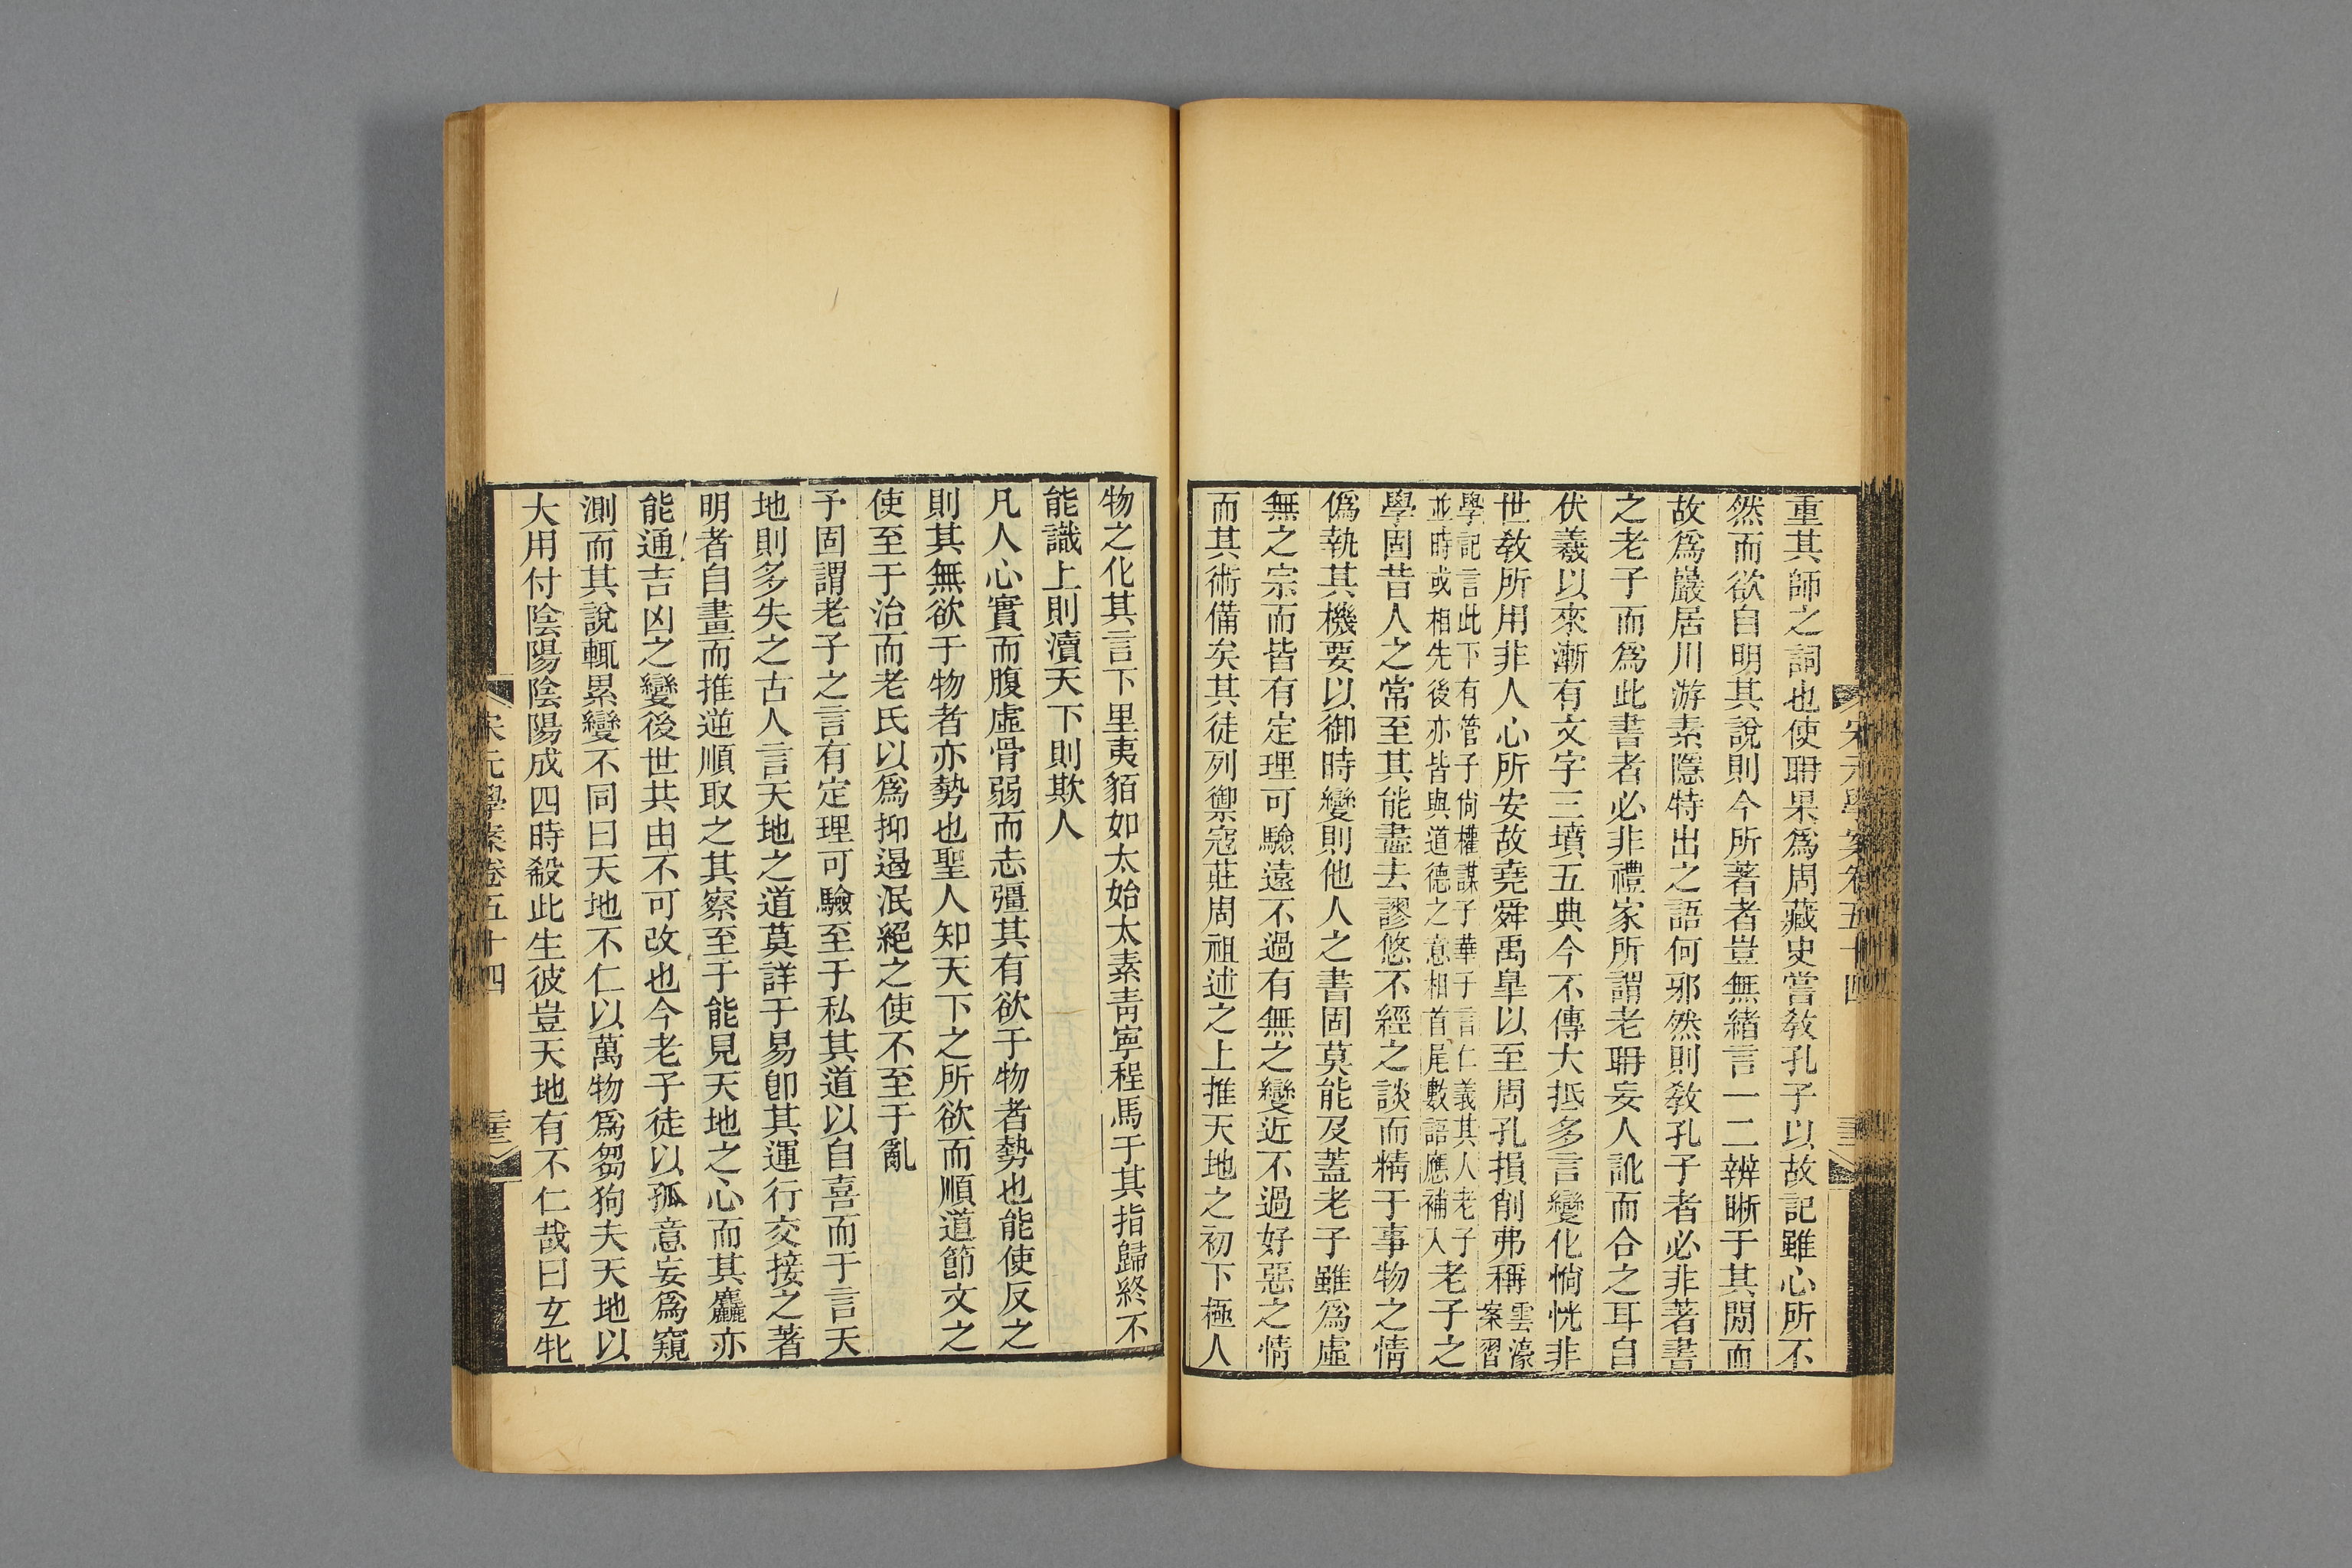 重其師之詞也使聃果爲周藏史嘗敎孔子以故記雖心所不
然而欲自明其說則今所著者豈無緒言一二辨晰于其閒而
故爲巖居川游素隱特出之語何邪然則敎孔子者必非著書
之老子而爲此書者必非禮家所謂老聃妄人訛而合之耳自
伏羲以來漸有文字三墳五典今不傳大抵多言變化惝恍非
世敎所用非人心所安故堯舜禹臯以至周孔損削弗稱雲濠
案習
學記言此下有管子尙權謀子華子言仁義其人老子
並時或相先後亦皆與道德之意相首尾數語應補入老子之
學固昔人之常至其能盡去謬悠不經之談而精于事物之情
僞執其機要以御時變則他人之書固莫能及蓋老子雖爲虛
無之宗而皆有定理可驗遠不過有無之變近不過好惡之情
而其術備矣其徒列禦寇莊周祖述之上推天地之初下極人
物之化其言下里夷貊如太始太素靑寧程馬于其指歸終不
能識上則瀆天下則欺人
凡人心實而腹虛骨弱而志彊其有欲于物者勢也能使反之
則其無欲于物者亦勢也聖人知天下之所欲而順道節文之
使至于治而老氏以爲抑遏泯絕之使不至于亂
予固謂老子之言有定理可驗至于私其道以自喜而于言天
地則多失之古人言天地之道莫詳于易卽其運行交接之著
明者自畫而推逆順取之其察至于能見天地之心而其麤亦
能通吉凶之變後世共由不可改也今老子徒以孤意妄爲窺
測而其說輒累變不同曰天地不仁以萬物爲芻狗夫天地以
大用付陰陽陰陽成四時殺此生彼豈天地有不仁哉曰玄牝
宋元學案卷五十四